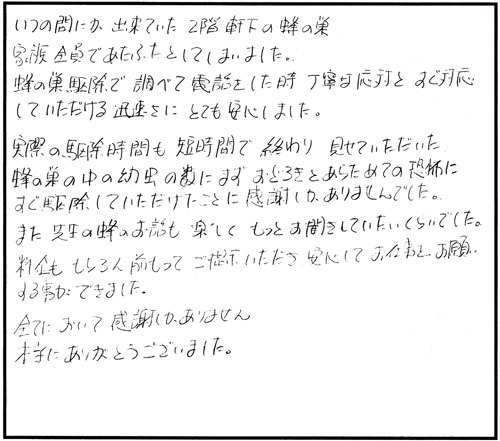 いつの間にか 出来ていた 2階 軒下の蜂の巣
家族全員であたふたとしてしまいました。
蜂の巣駆除で 調べて電話をした時 丁寧な応対と すぐ対応
していただける 迅速さに とても安心しました。
実際の駆除時間も 短時間で 終わり 見せていただいた
蜂の巣の中の幼虫の数にまず おどろきとあらためての恐怖に
すぐ駆除していただけたことに 感謝しかありませんでした。
また 先生の蜂のお話も 楽しく もっと お聞きしていたいくらいでした。
料金も もちろん 前もって ご提示いただき 安心して お仕事を お願い
する事が できました。
全てにおいて 感謝しかありません
本当にありがとうございました。